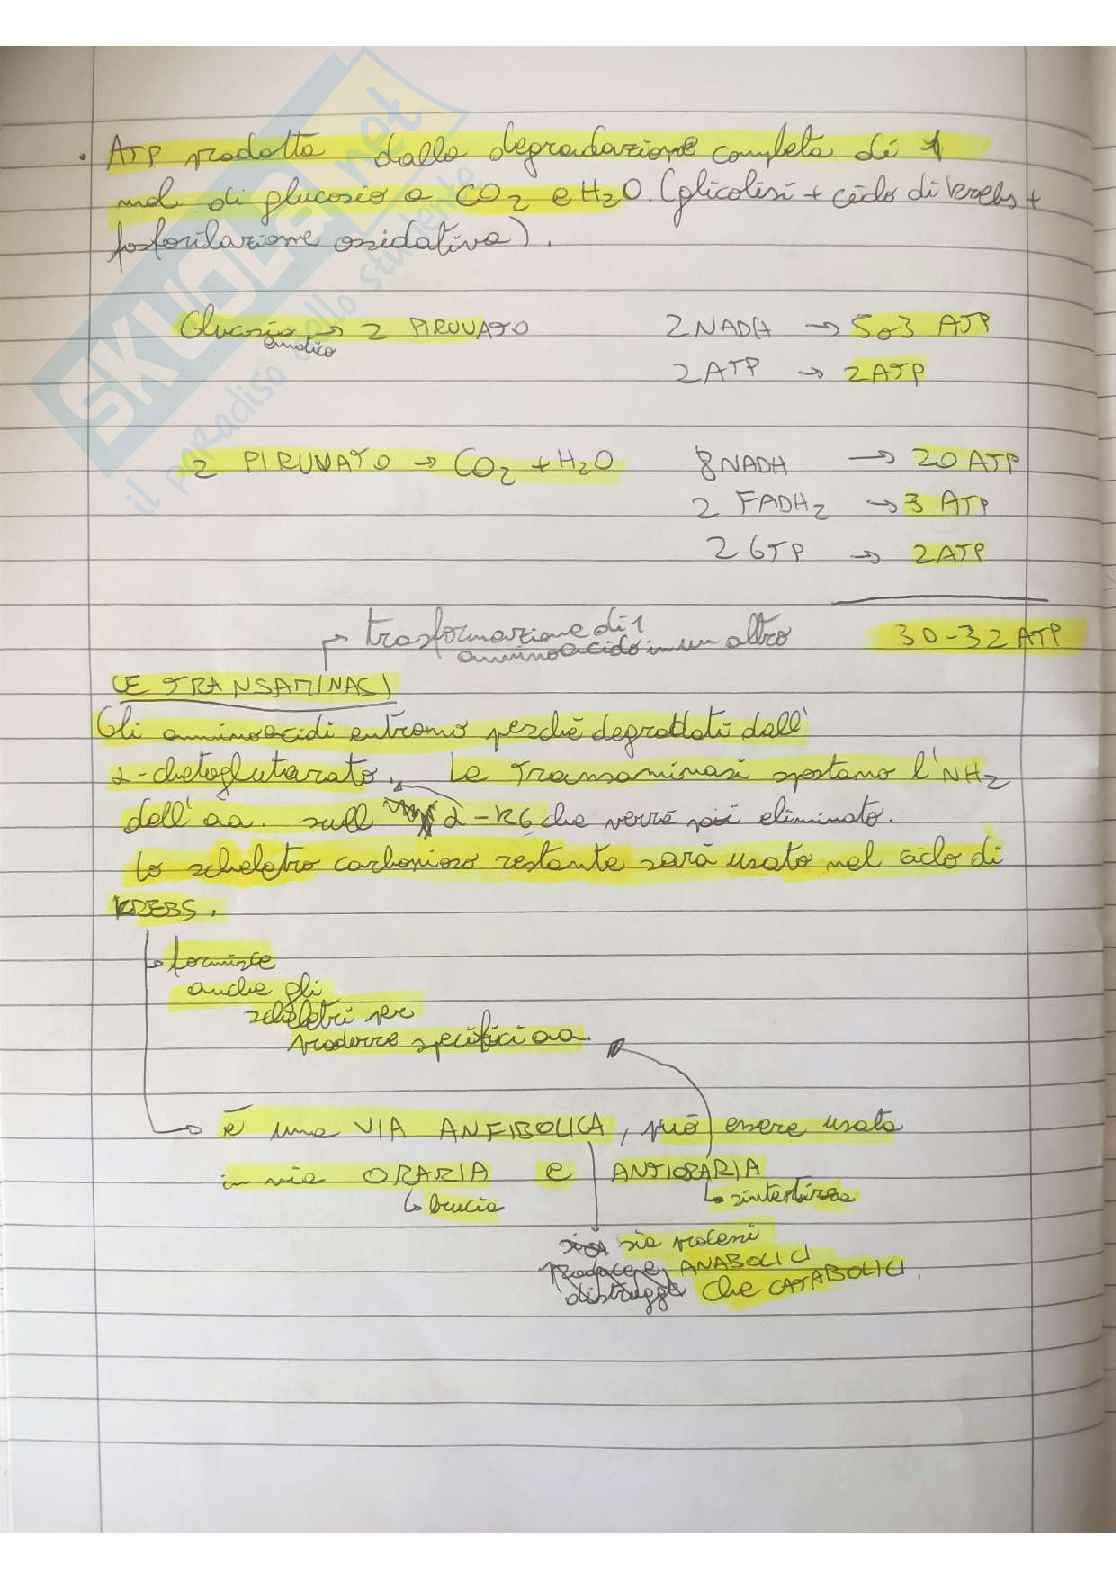 . ATP prodotta dalla degradazione completa di 1
mol di glucosio a CO2 e H2O. (glicolisi + ciclo di krebs +
fosforilazione ossidativa).
Glucosio → 2 PIRUVATO 2 NADH → 5 o 3 ATP
ematico
2 ATP → 2 ATP
2 PIRUVATO → CO2 + H2O 8 NADH → 20 ATP
2 FADH2 → 3 ATP
2 GTP → 2 ATP
30-32 ATP
→ trasformazione di 1
aminoacido in un altro
LE TRANSAMINASI
Gli aminoacidi entrano perchè degradati dall'
α-chetoglutarato. Le Transaminasi spostano l'NH2
dell'aa. sull α-KG che verrà poi eliminato.
Lo scheletro carbonioso restante sarà usato nel ciclo di
KREBS.
↳ fornisce
anche gli
scheletri per
produrre specifici aa
→ È una VIA ANFIBOLICA, può essere usata
in via ORARIA e ANTIORARIA
↳ brucia ↳ sintetizza
sia
produce ANABOLICI
distrugge che CATABOLICI.
SKUOLA.net
il paradiso dello studente